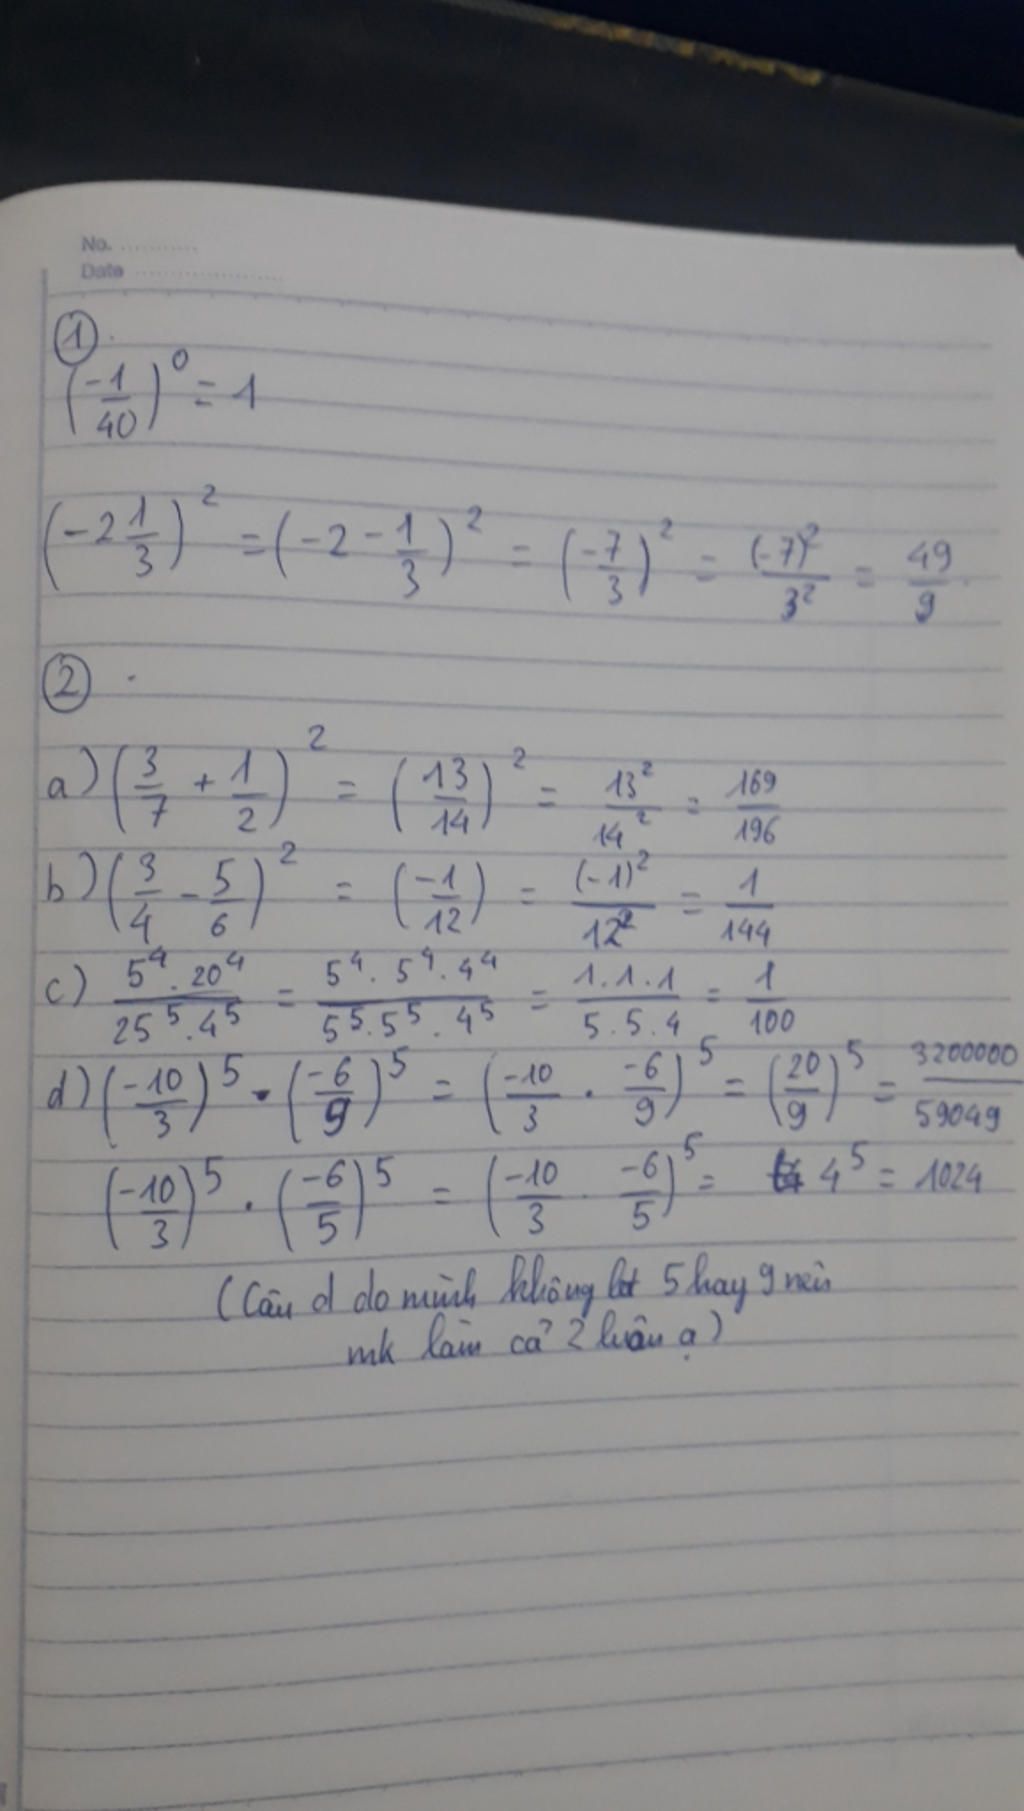 No. ...........
Date ......................
① .
(-1/40)^0 = 1
(-2 1/3)^2 = (-2 - 1/3)^2 = (-7/3)^2 = (-7)^2/3^2 = 49/9.
② .
a) (3/7 + 1/2)^2 = (13/14)^2 = 13^2/14^2 = 169/196
b) (3/4 - 5/6)^2 = (-1/12) = (-1)^2/12^2 = 1/144
c) 5^4 . 20^4/25^5 . 4^5 = 5^4 . 5^4 . 4^4/5^5 . 5^5 . 4^5 = 1 . 1 . 1/5 . 5 . 4 = 1/100
d) (-10/3)^5 . (-6/9)^5 = (-10/3 . -6/9)^5 = (20/9)^5 = 3200000/59049
(-10/3)^5 . (-6/5)^5 = (-10/3 . -6/5)^5 = 4^5 = 1024
(Câu d do mình không 5 hay 9 nên
mk làm cả 2 luôn ạ)